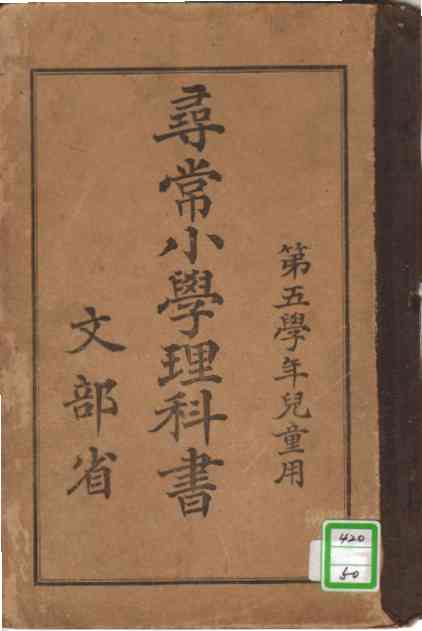 第五學年兒童用
尋常小學理科書
文部省
420
50